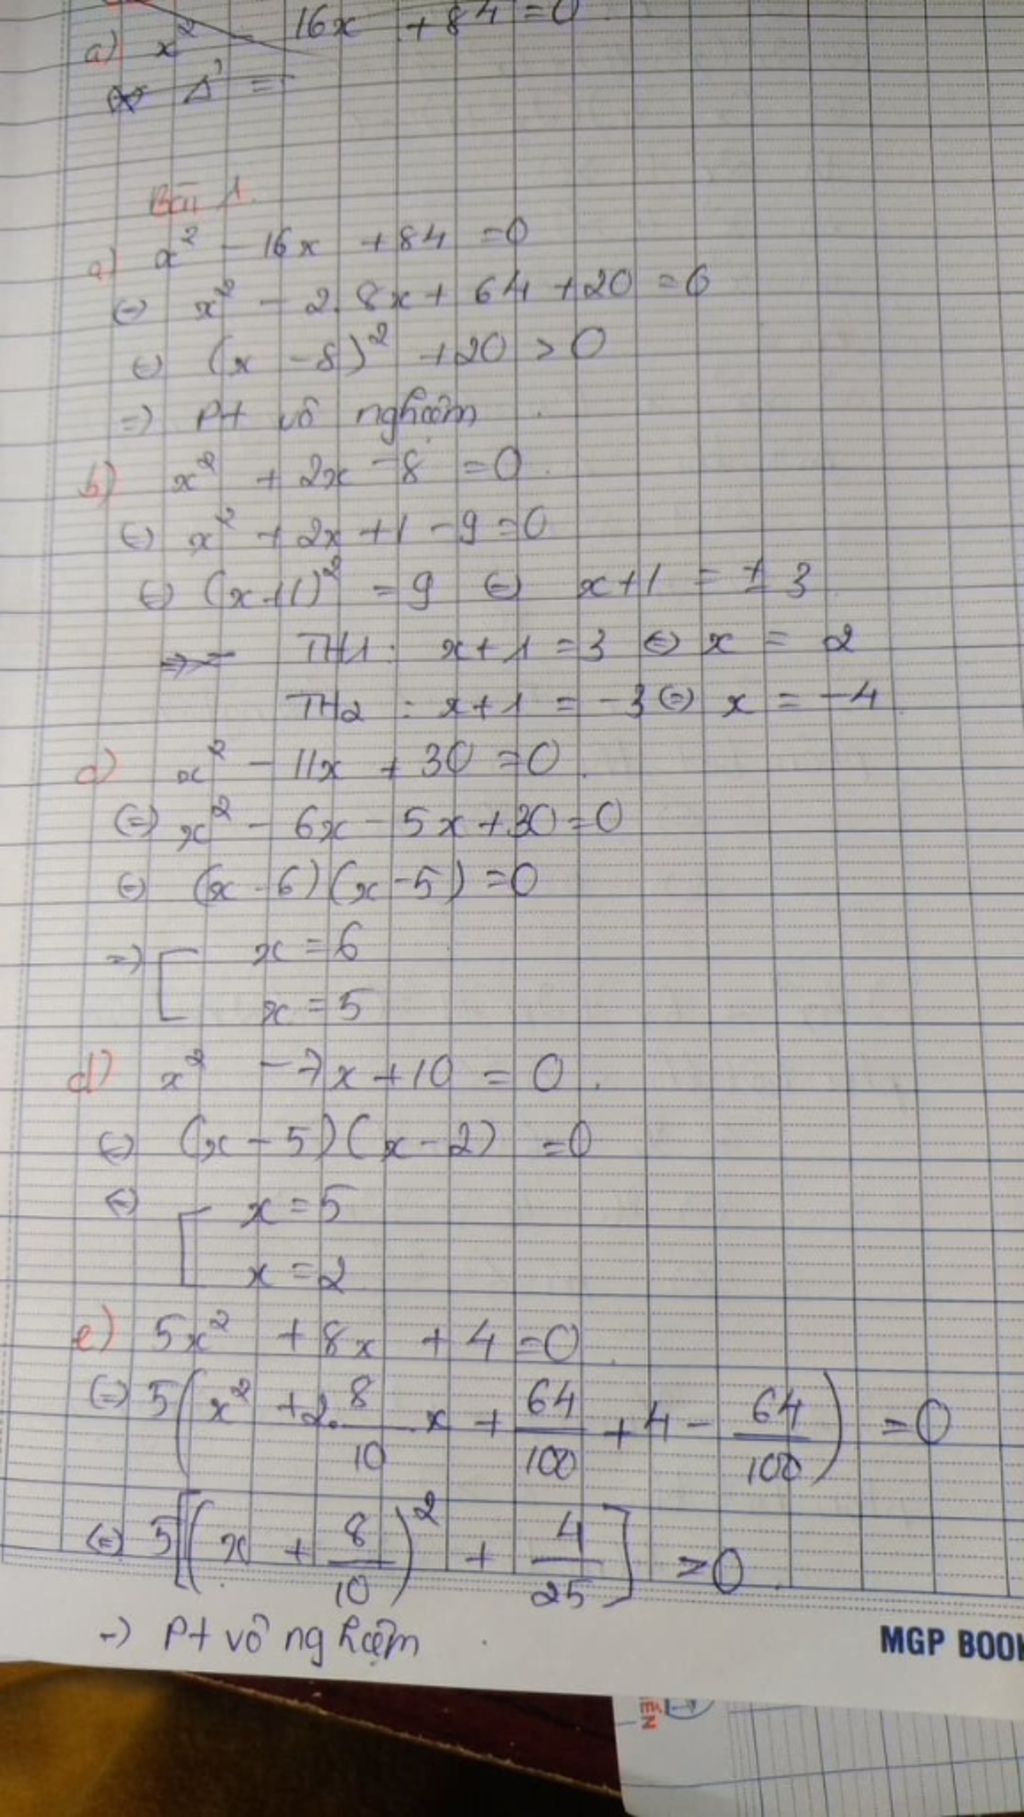 a) x² - 16x + 84 = 0
Δ' =
Bài 1.
a) x² - 16x + 84 = 0
(=) x² - 2.8x + 64 + 20 = 0
(=) (x - 8)² + 20 > 0
=) Pt vô nghiệm
b) x² + 2x - 8 = 0
(=) x² + 2x + 1 - 9 = 0
(=) (x+1)² = 9 (=) x+1 = ±3
TH1: x+1 = 3 (=) x = 2
TH2: x+1 = -3 (=) x = -4
c) x² - 11x + 30 = 0
(=) x² - 6x - 5x + 30 = 0
(=) (x-6)(x-5) = 0
=) [ x = 6
x = 5
d) x² - 7x + 10 = 0.
(=) (x-5)(x-2) = 0
(=) [ x = 5
x = 2
e) 5x² + 8x + 4 = 0
(=) 5(x² + 2.8/10 x + 64/100 + 4 - 64/100) = 0
(=) 5[(x + 8/10)² + 4/25] > 0
=) Pt vô nghiệm.
MGP BOO